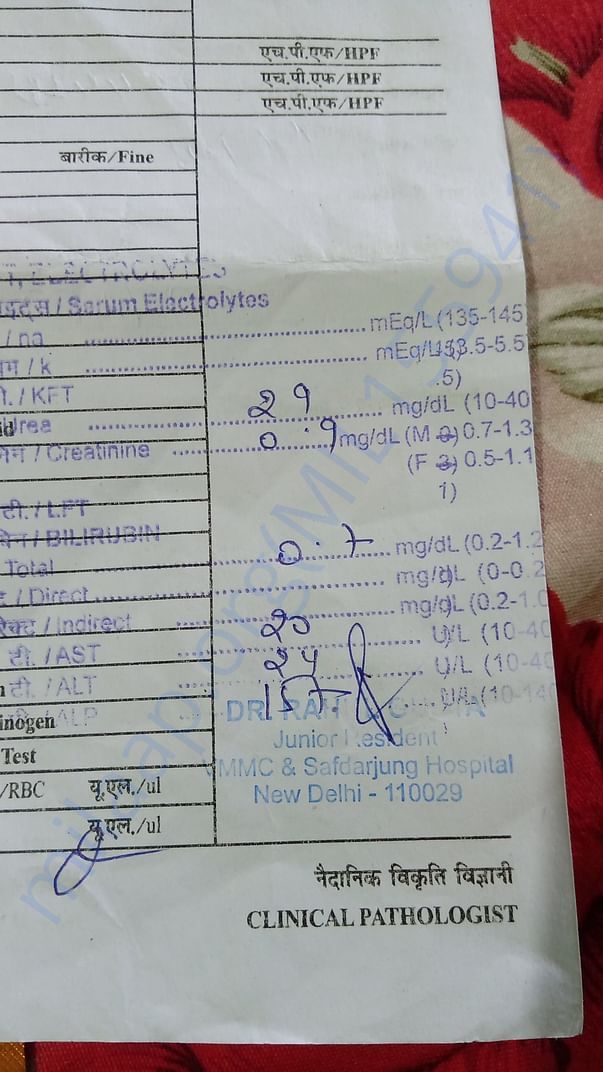 एच.पी.एफ/HPF
एच.पी.एफ/HPF
एच.पी.एफ/HPF
बारीक/Fine
ELECTROLYTES
/ Sarum Electrolytes
/ na mEq/L (135-145
/ k mEq/L 3.5-5.5
.5)
/ KFT
Urea 29 mg/dL (10-40
/ Creatinine 0.9 mg/dL (M 0.7-1.3
(F 0.5-1.1
1)
टी. / LFT
/ BILIRUBIN
Total 0.7 mg/dL (0.2-1.2
/ Direct mg/dL (0-0.2
/ Indirect mg/dL (0.2-1.0
टी. / AST 20 U/L (10-40
टी. / ALT 24 U/L (10-40
inogen / ALP 157 U/L (10-140
DR.
Junior Resident
Test
VMMC & Safdarjung Hospital
/RBC यू.एल./ul
New Delhi - 110029
यू.एल./ul
नैदानिक विकृति विज्ञानी
CLINICAL PATHOLOGIST
milaap.org(MIL1159411)